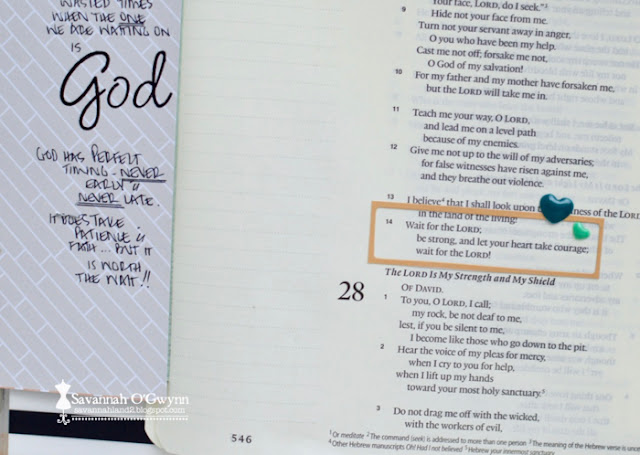 WASTED TIMES
WHEN THE ONE
WE ARE WAITING ON
IS
God
GOD HAS PERFECT
TIMING - NEVER
EARLY &
NEVER LATE.
IT DOES TAKE
PATIENCE &
FAITH... BUT IT
IS WORTH
THE WAIT!!
Savannah O'Gwynn
savannahland2.blogspot.com
"Your face, LORD, do I seek."³
9 Hide not your face from me.
Turn not your servant away in anger,
O you who have been my help.
Cast me not off; forsake me not,
O God of my salvation!
10 For my father and my mother have forsaken me,
but the LORD will take me in.
11 Teach me your way, O LORD,
and lead me on a level path
because of my enemies.
12 Give me not up to the will of my adversaries;
for false witnesses have risen against me,
and they breathe out violence.
13 I believe⁴ that I shall look upon ness of the LORD
in the land of the living!
14 Wait for the LORD;
be strong, and let your heart take courage;
wait for the LORD!
The LORD Is My Strength and My Shield
28 OF DAVID.
1 To you, O LORD, I call;
my rock, be not deaf to me,
lest, if you be silent to me,
I become like those who go down to the pit.
2 Hear the voice of my pleas for mercy,
when I cry to you for help,
when I lift up my hands
toward your most holy sanctuary.⁵
3 Do not drag me off with the wicked,
with the workers of evil,
546
¹ Or meditate ² The command (seek) is addressed to more than one person ³ The meaning of the Hebrew verse is
⁴ Other Hebrew manuscripts Oh! Had I not believed ⁵ Hebrew your innermost sanctuary